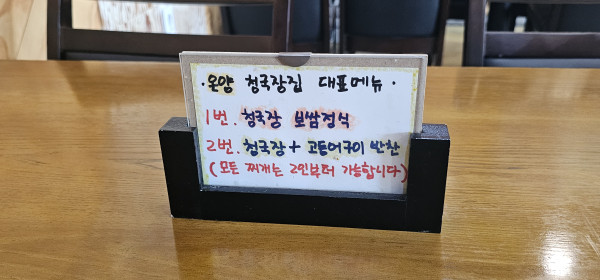 · 온양 청국장집 대표메뉴 ·
1번. 청국장 보쌈정식
2번. 청국장 + 고등어구이 반찬
(모든 찌개는 2인부터 가능합니다)